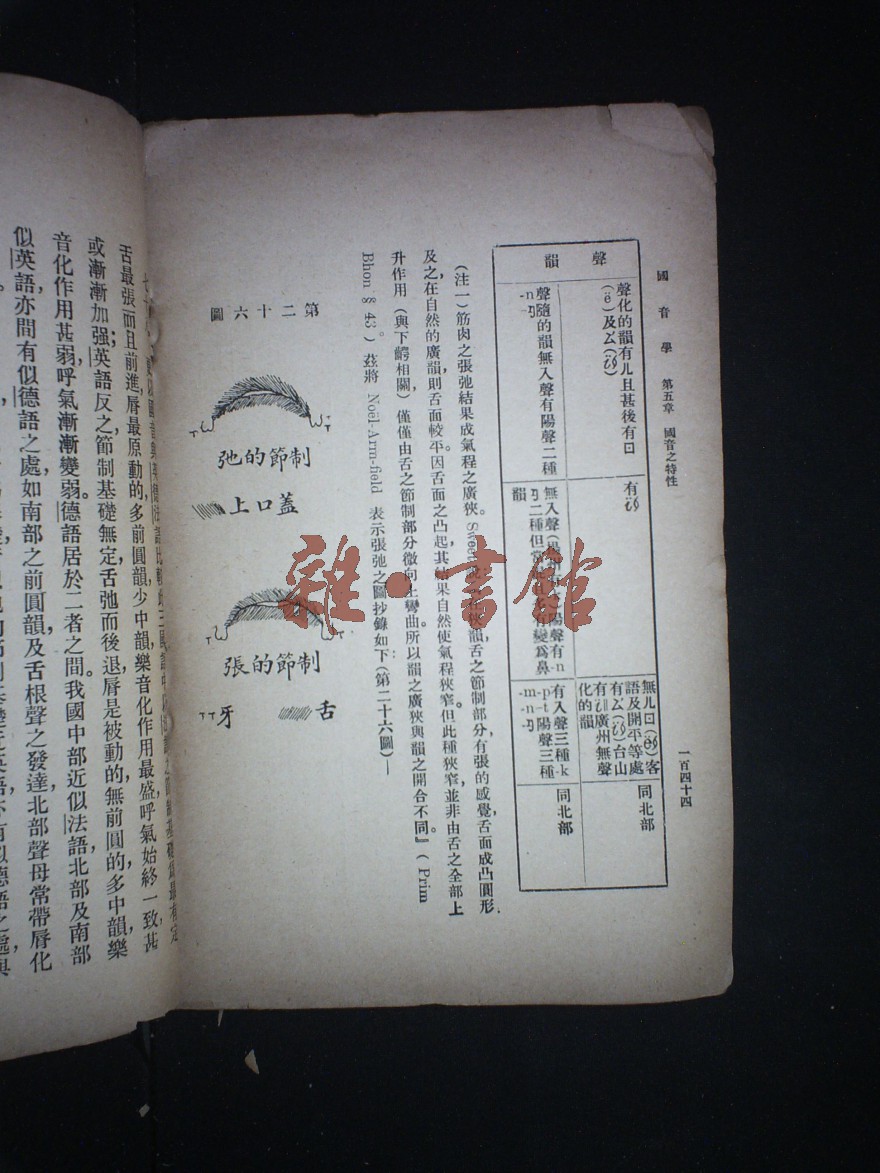 國音學 第五章 國音之特性
一百四十四
聲韻
聲化的韻有ㄦ且甚後有
有
無ㄦ
客
語及開平等處
有ㄥ
台山
有
廣州無聲
化的韻
同北部
聲隨的韻無入聲有陽聲二種
-n-ŋ
無入聲
陽聲有-n
-ŋ二種但常
有變爲鼻
韻
有入聲三種-k
-p-t陽聲三種
-m-n-ŋ
同北部
(注一)筋肉之張弛結果成氣程之廣狹。Sweet
狹韻舌之節制部分,有張的感覺,舌面成凸圓形,
及之在自然的廣韻,則舌面較平。因舌面之凸起,其結果自然使氣程狹窄。但此種狹窄,並非由舌之全部上
升作用(與下齶相關)僅僅由舌之節制部分微向上彎曲。所以韻之廣狹與韻之開合不同。』(Prim
Bhon § 43)。茲將 Noël-Arm-field 表示張弛之圖抄錄如下(第二十六圖)—
第二十六圖
制節的弛
蓋口上
制節的張
舌
牙
雜·書館
舌最張,而且前進,脣最原動的,多前圓韻,少中韻,樂音化作用最盛,呼氣始終一致,甚
或漸漸加强;英語反之,節制基礎無定,舌弛而後退,脣是被動的,無前圓的,多中韻,樂
音化作用甚弱,呼氣漸漸變弱。德語居於二者之間。我國中部近似法語,北部及南部
似英語,亦間有似德語之處,如南部之前圓韻及舌根聲之發達,北部聲母常帶脣化